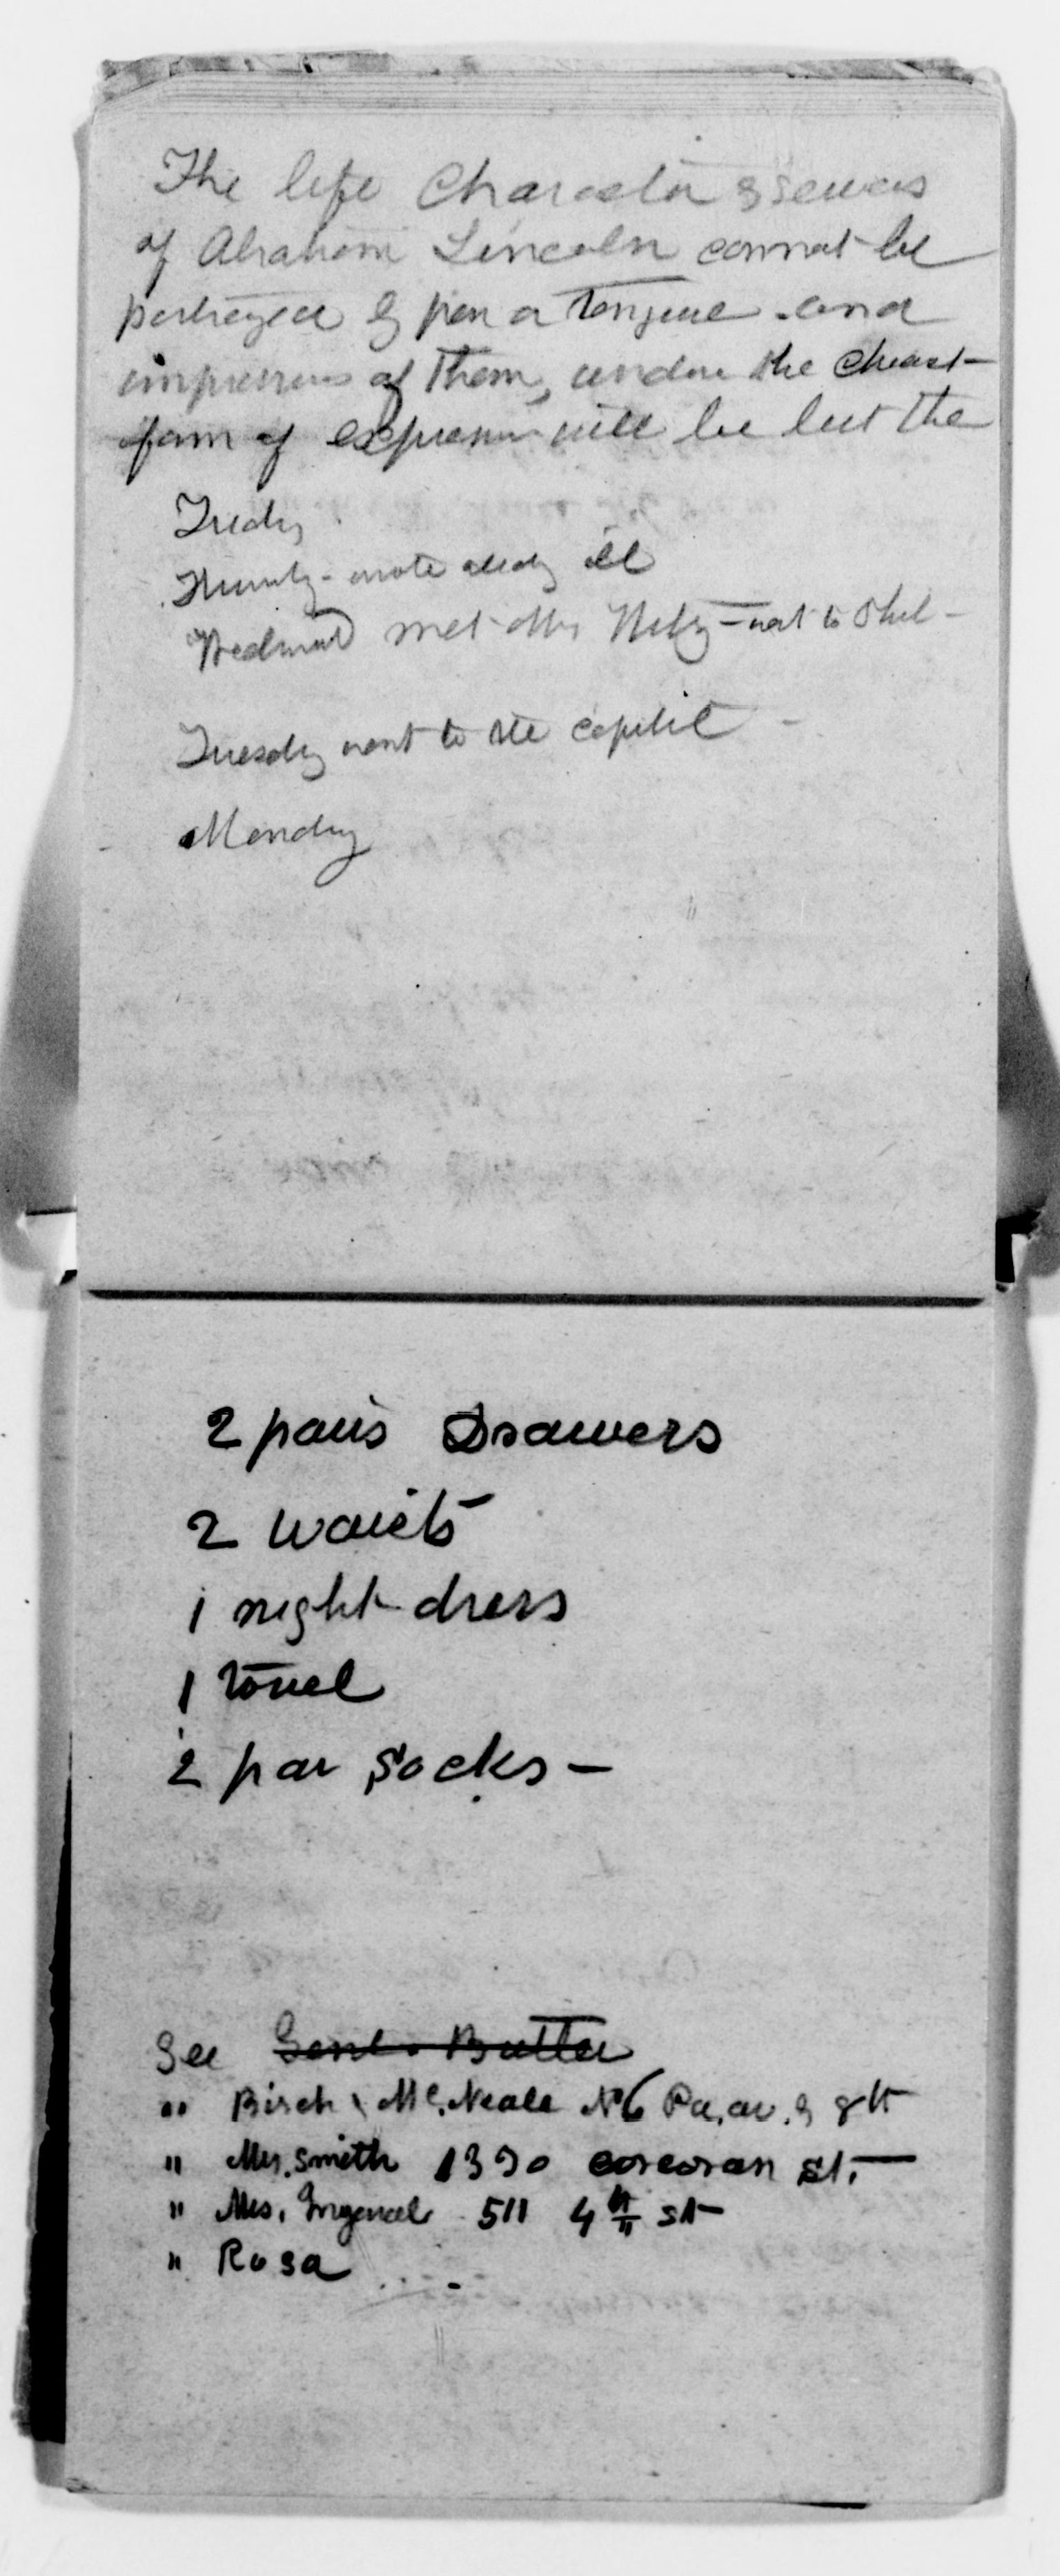 The life Character & services
of Abraham Lincoln cannot be
portrayed by pen or tongue and
impressions of them, under the
form of expression will be but the
Friday
wrote all day ill
Wednesd met Mrs - went to Phil -
Tuesday went to the capitil -
Monday
2 pairs Drawers
2 waists
1 night dress
1 towel
2 par socks -
See Genl. Butler
" Birch & McNeale No 6 Pa. av. & 8th
" Mrs. Smith 1320 corcoran st. -
" Mrs. 511 4th st
" Rosa